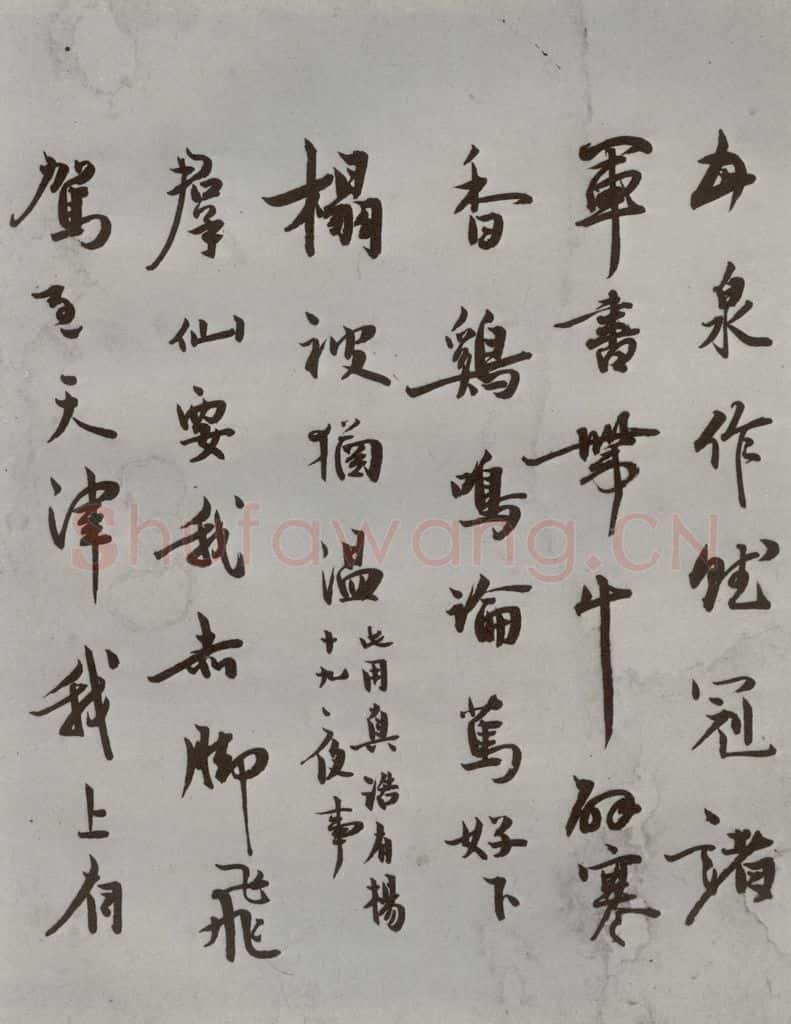 甘泉作賦冠諸
軍書帶斗研寒
香鷄鳴論篤好下
榻被猶溫
此用真誥有楊
十九〻夜事
羣仙要我赤脚飛
駕至天津我上有
Shufawang.CN